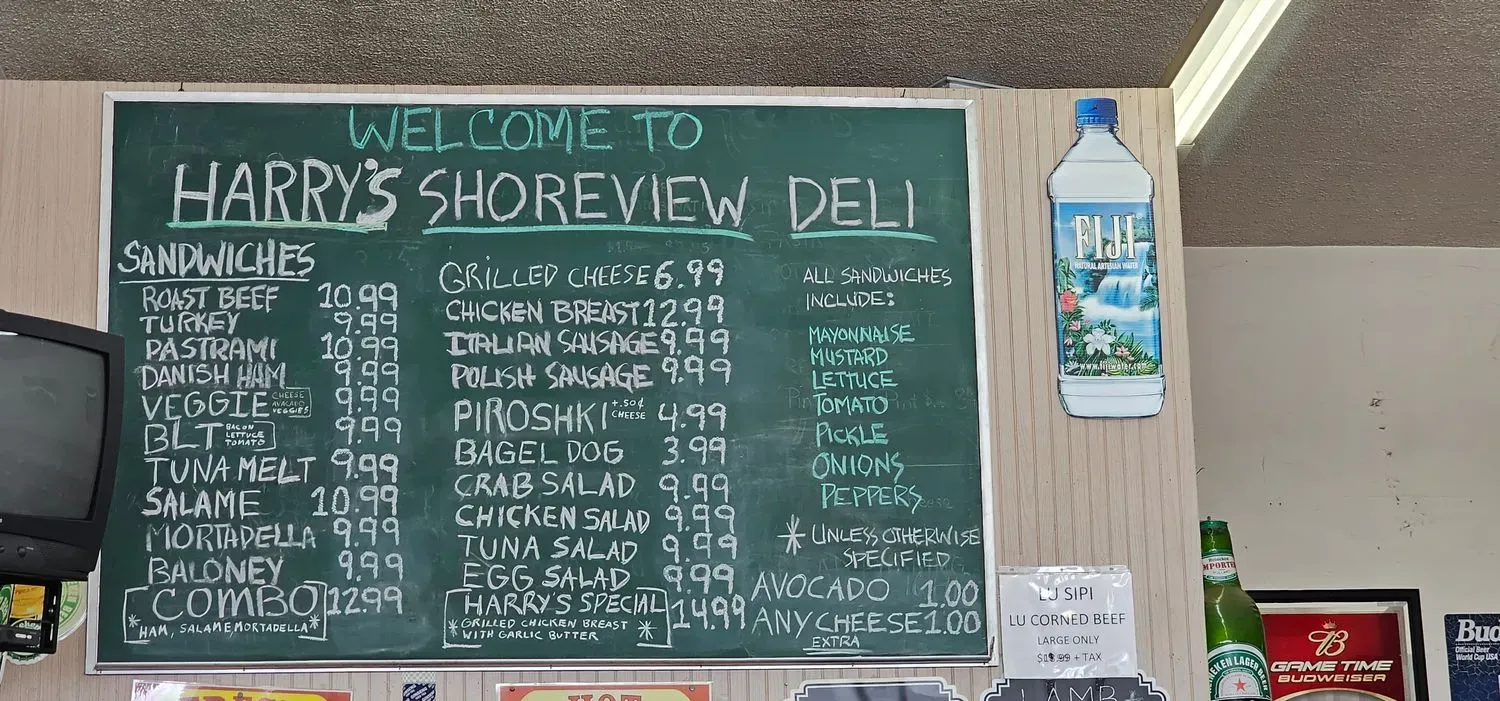 WELCOME TO
HARRY'S SHOREVIEW DELI
SANDWICHES
ROAST BEEF 10.99
TURKEY 9.99
PASTRAMI 10.99
DANISH HAM 9.99
VEGGIE CHEESE AVACADO VEGGIES 9.99
BLT BACON LETTUCE TOMATO 9.99
TUNA MELT 9.99
SALAME 10.99
MORTADELLA 9.99
BALONEY 9.99
COMBO 12.99
* HAM, SALAME MORTADELLA *
GRILLED CHEESE 6.99
CHICKEN BREAST 12.99
ITALIAN SAUSAGE 9.99
POLISH SAUSAGE 9.99
PIROSHKI +.50¢ CHEESE 4.99
BAGEL DOG 3.99
CRAB SALAD 9.99
CHICKEN SALAD 9.99
TUNA SALAD 9.99
EGG SALAD 9.99
HARRY'S SPECIAL 14.99
* GRILLED CHICKEN BREAST
WITH GARLIC BUTTER *
ALL SANDWICHES
INCLUDE:
MAYONNAISE
MUSTARD
LETTUCE
TOMATO
PICKLE
ONIONS
PEPPERS
* UNLESS OTHERWISE
SPECIFIED
AVOCADO 1.00
ANY CHEESE 1.00
EXTRA
FIJI
NATURAL ARTESIAN WATER
www.fijiwater.com
LU SIPI
LU CORNED BEEF
LARGE ONLY
+ TAX
LAMB
HOT
IMPORTED
LAGER BEER
B
GAME TIME
BUDWEISER
Official Beer
World Cup USA